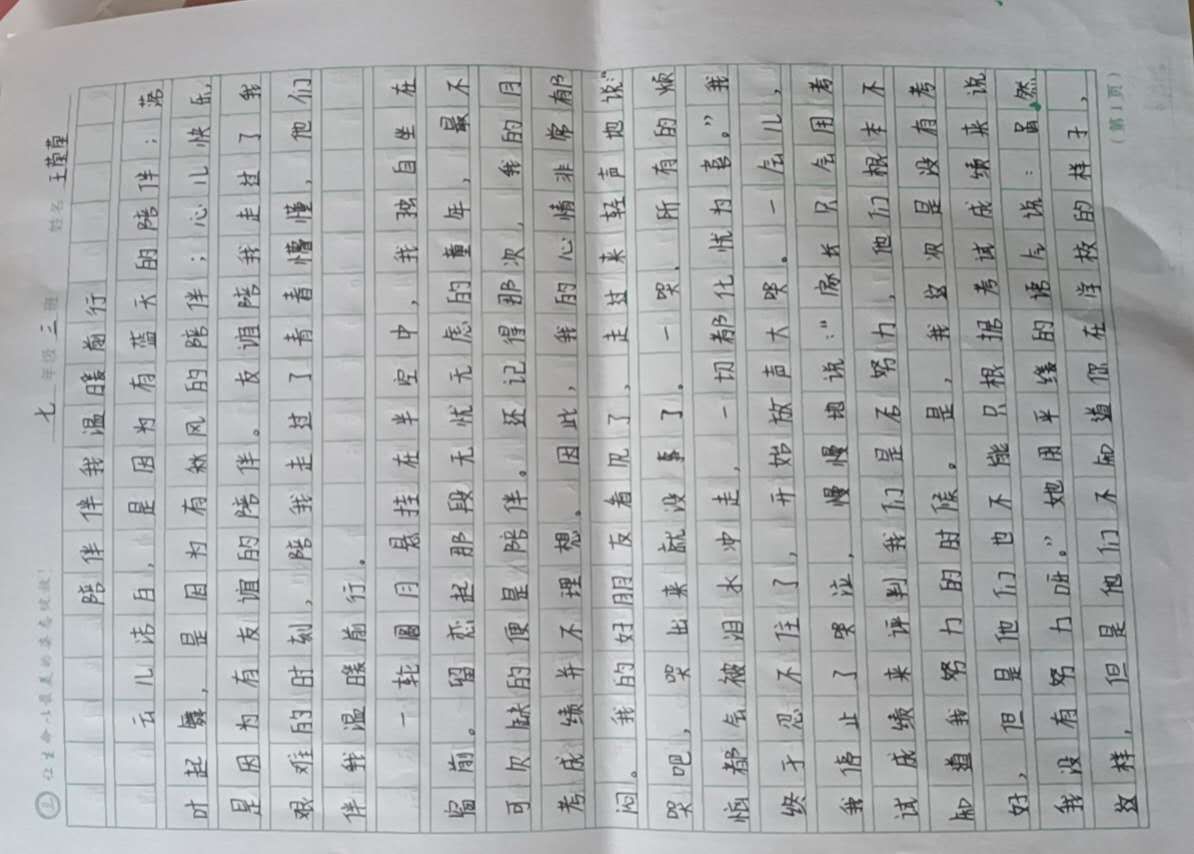 让生命以最美的姿态绽放！
七 年级 三 班 姓名 王莹莹
陪伴伴我温暖前行
云儿洁白，是因为有蓝天的陪伴；落
叶起舞，是因为有秋风的陪伴；心儿快乐，
是因为有友谊的陪伴。友谊陪我走过了我
艰难的时刻，陪我走过了青春懵懂，他们
伴我温暖前行。
一轮圆月悬挂在半空中，我独自坐在
窗前。留恋起那段无忧无虑的童年，最不
可欠缺的便是陪伴。还记得那次，我的月
考成绩并不理想。因此，我的心情非常郁
闷。我的好朋友看见了，走过来轻声地说：“
哭吧，哭出来就没事了。一哭，所有的烦
恼都会被泪水冲走，一切都化忧为喜。”我
终于忍不住了，开始放声大哭。一会儿，
我停止了哭泣，慢慢地说：“家长只会用考
试成绩来评判我们是否努力，他们根本不
知道我努力的时候。是，我这次是没有考
好，但是他们也不能只根据考试成绩来说
我没有努力呀。”她用平缓的语气说：虽然
这样，但是他们不知道你在学校的样子，
（第1页）